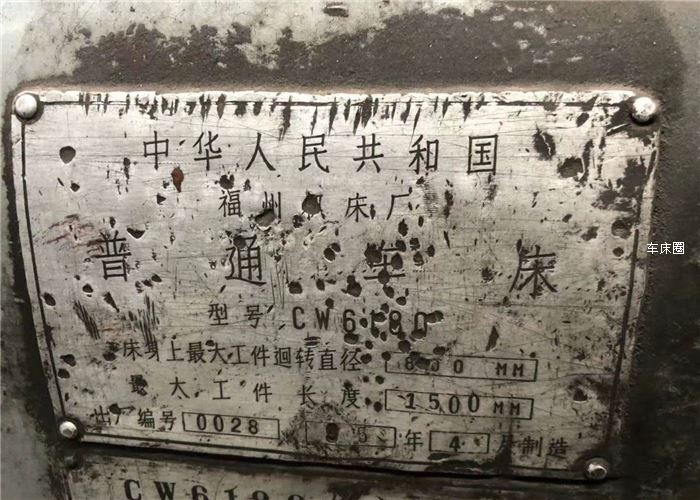 中华人民共和国
福州 床厂
普通车床
型号 CW6180
床身上最大工件迴转直径 800 MM
最大工件长度 1500 MM
出厂编号 0028 年 4 月制造
车床圈